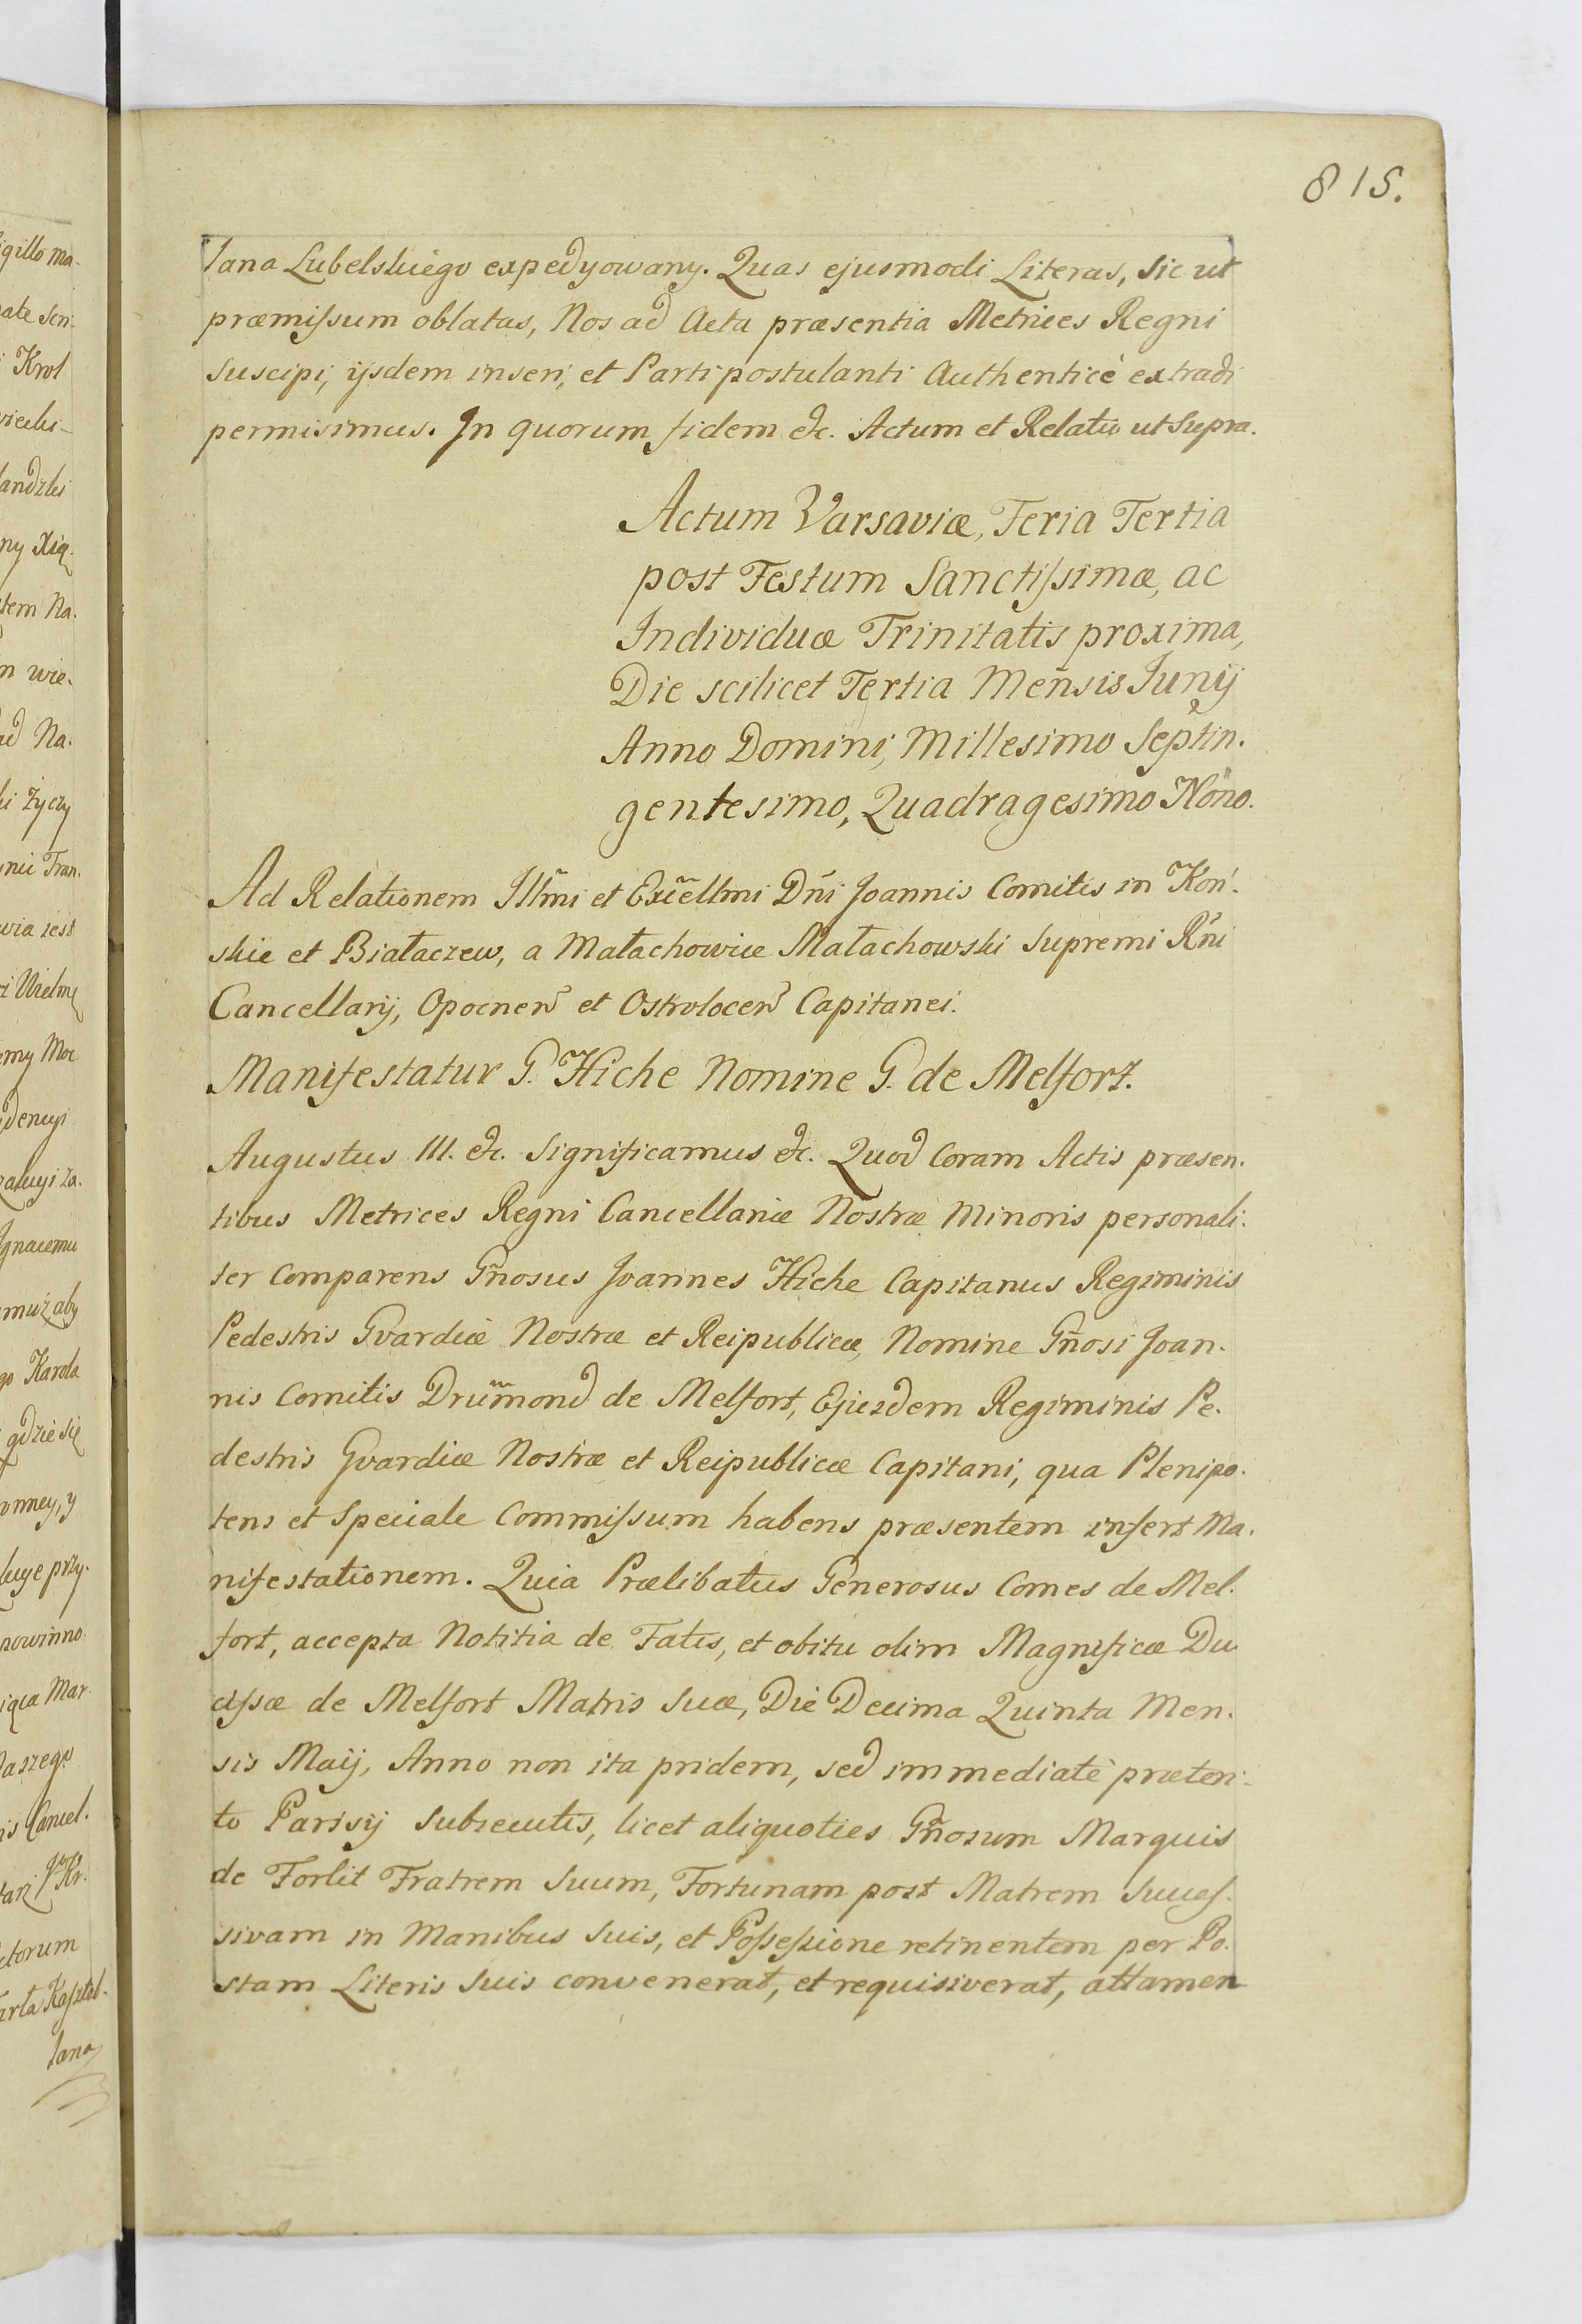 815.
lana Lubelskiego expedyowany. Quas ejusmodi Literas, sic ut
præmissum oblatas, Nos ad Acta præsentia Metrices Regni
suscipi, ijsdem inseri, et Parti postulanti Authenticè extradi
permisimus. In quorum fidem etc. Actum et Relatio ut Supra.
Actum Varsaviæ, Feria Tertia
post Festum Sanctissimæ, ac
Individuæ Trinitatis proxima,
Die scilicet Tertia Mensis Junij
Anno Domini, Millesimo Septin.
gentesimo, Quadragesimo Nono.
Ad Relationem Illm̃i et Excellm̃i Dñi Joannis Comitis in Koń.
skie et Białaczew, a Małachowice Małachowski Supremi Rñi
Cancellarij, Opocnen et Ostrolocen Capitanei.
Manifestatur G. Hiche Nomine G. de Melfort.
Augustus III. etc. Significamus etc. Quod Coram Actis præsen.
tibus Metrices Regni Cancellariæ Nostræ Minoris personali.
ter Comparens Gñosus Joannes Hiche Capitanus Regiminis
Pedestris Gvardiæ Nostræ et Reipublicæ, Nomine Gñosi Joan.
nis Comitis Drum̃ond de Melfort, Ejusdem Regiminis Pe.
destris Gvardiæ Nostræ et Reipublicæ Capitani, qua Plenipo.
tens et Speciale Commissum habens præsentem infert Ma.
nifestationem. Quia Prælibatus Generosus Comes de Mel.
fort, accepta Notitia de Fatis, et obitu olim Magnificæ Du
cissæ de Melfort Matris Suæ, Die Decima Quinta Men.
sis Maij, Anno non ita pridem, sed immediatè præteri-
to Parisij Subsecutis, licet aliquoties Gñosum Marquis
de Forlit Fratrem Suum, Fortunam post Matrem Succes.
sivam in Manibus Suis, et Possessione retinentem per Po.
stam Literis Suis convenerat, et requisiverat, attamen